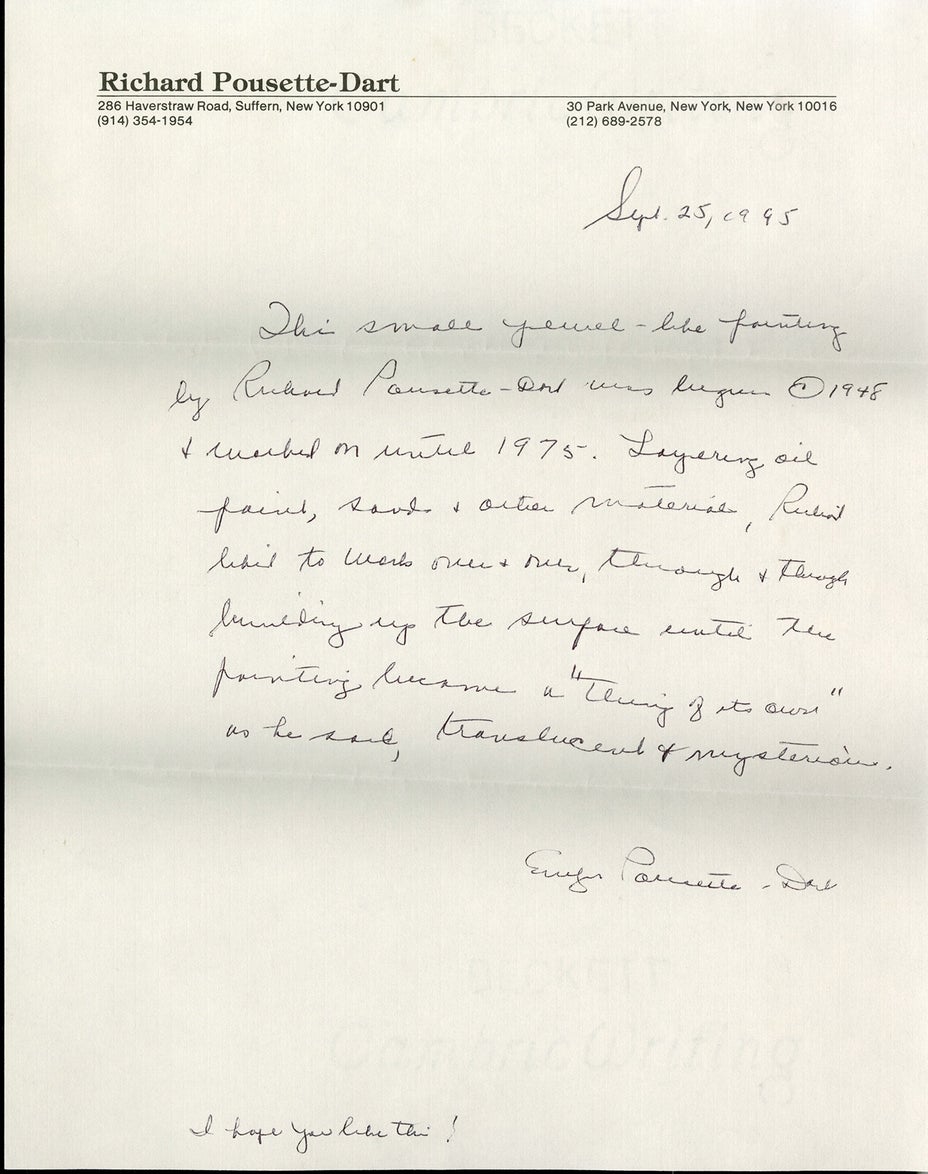 Richard Pousette-Dart
286 Haverstraw Road, Suffern, New York 10901
(914) 354-1954
30 Park Avenue, New York, New York 10016
(212) 689-2578
Sept. 25, 1995
This small jewel-like painting
by Richard Pousette-Dart was begun © 1948
& worked on until 1975. Layering oil
paint, sands & other materials, Richard
liked to work over & over, through & through
building up the surface until the
painting became a "thing of its own"
as he said, translucent & mysterious.
Evelyn Pousette-Dart
Cambric Writing
I hope you like this!